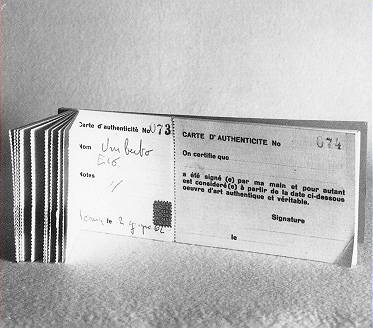 Carte d'authenticité No 073
Nom Umberto
Eco
Notes
Roma le 2
CARTE D'AUTHENTICITE No 074
On certifie que
a été signé (e) par ma main et pour autant
est considéré (e) à partir de la date ci-dessous
oeuvre d'art authentique et véritable.
Signature
le